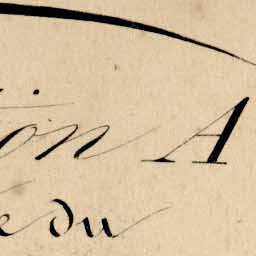 ion A
e du